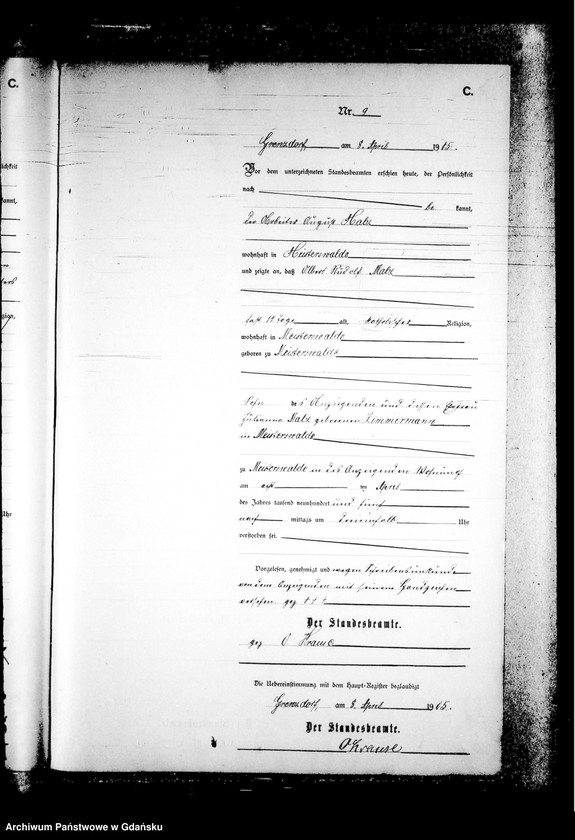 C.
C.
Nr. 9
Grenzdorf, am 8. April 1905.
Vor dem unterzeichneten Standesbeamten erschien heute, der Persönlichkeit
nach
be kannt,
der Arbeiter August Malz
wohnhaft in Meisterwalde
und zeigte an, daß Albert Rudolf Malz
fast 11 Tage alt, katholischer Religion,
wohnhaft in Meisterwalde
geboren zu Meisterwalde
Sohn des Anzeigenden und dessen Ehefrau
Julianna Malz geborenen Zimmermann
in Meisterwalde
zu Meisterwalde in des Anzeigenden Wohnung
am April
des Jahrs tausend neunhundert und fünf
nach mittags um Uhr
verstorben sei.
Vorgelesen, genehmigt und wegen Schreibensunkunde
von dem Anzeigenden mit seinem Handzeichen
versehen gez. +++
Der Standesbeamte.
gez. O Krause
Die Uebereinstimmung mit dem Haupt-Register beglaubigt
Grenzdorf, am 8. April 1905.
Der Standesbeamte.
O Krause
Archiwum Państwowe w Gdańsku